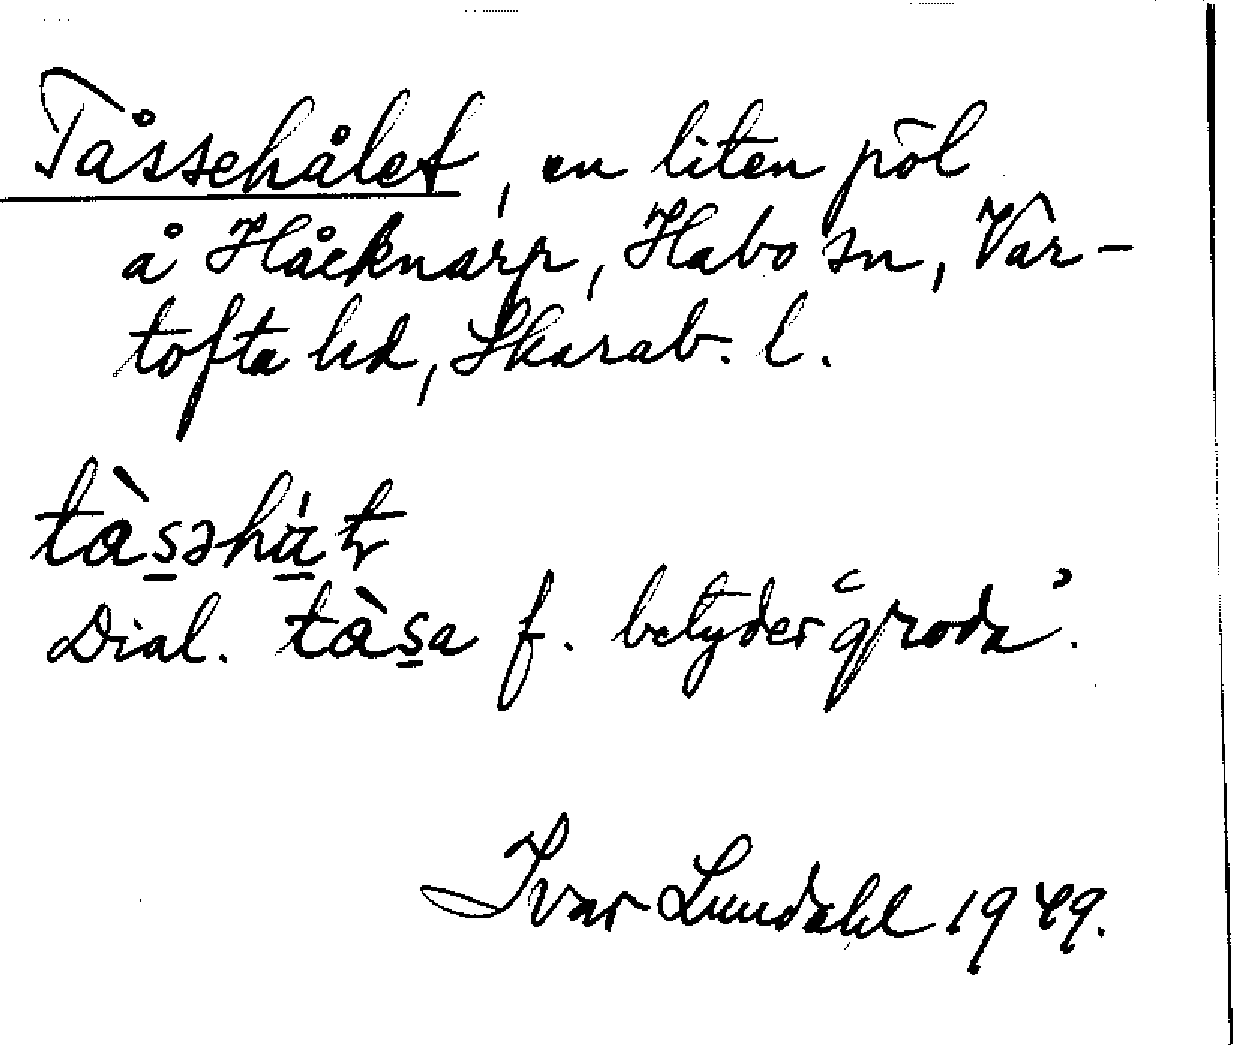 Tåssehålet, en liten pöl
å Håcknarp, Habo sn, Var-
tofta hd, Skarab. l.
tàs̲əhά̲t
Dial. tàs̲a f. betyder "groda".
Ivar Lundahl 1949.